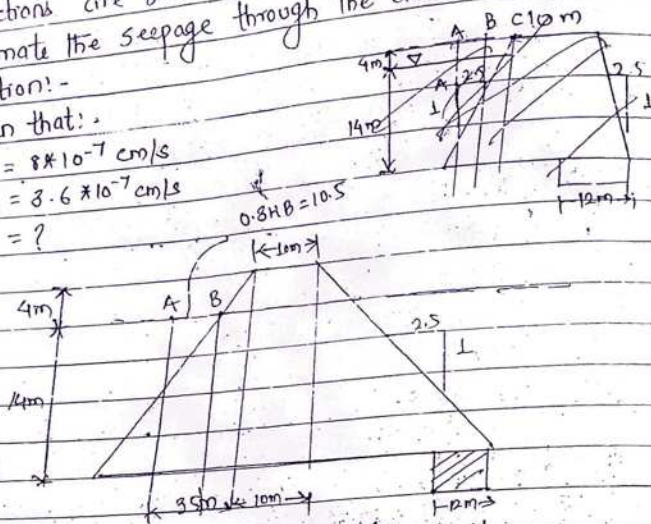 mate the seepage through the
tion:-
n that:-
= 8*10-7 cm/s
= 3.6*10-7 cm/s
= ?
A B C 10 m
4m
A 2.5
1
14m
2.5
1
12m
0.3HB=10.5
10m
4m
A B
2.5
1
14m
35m 10m
12m